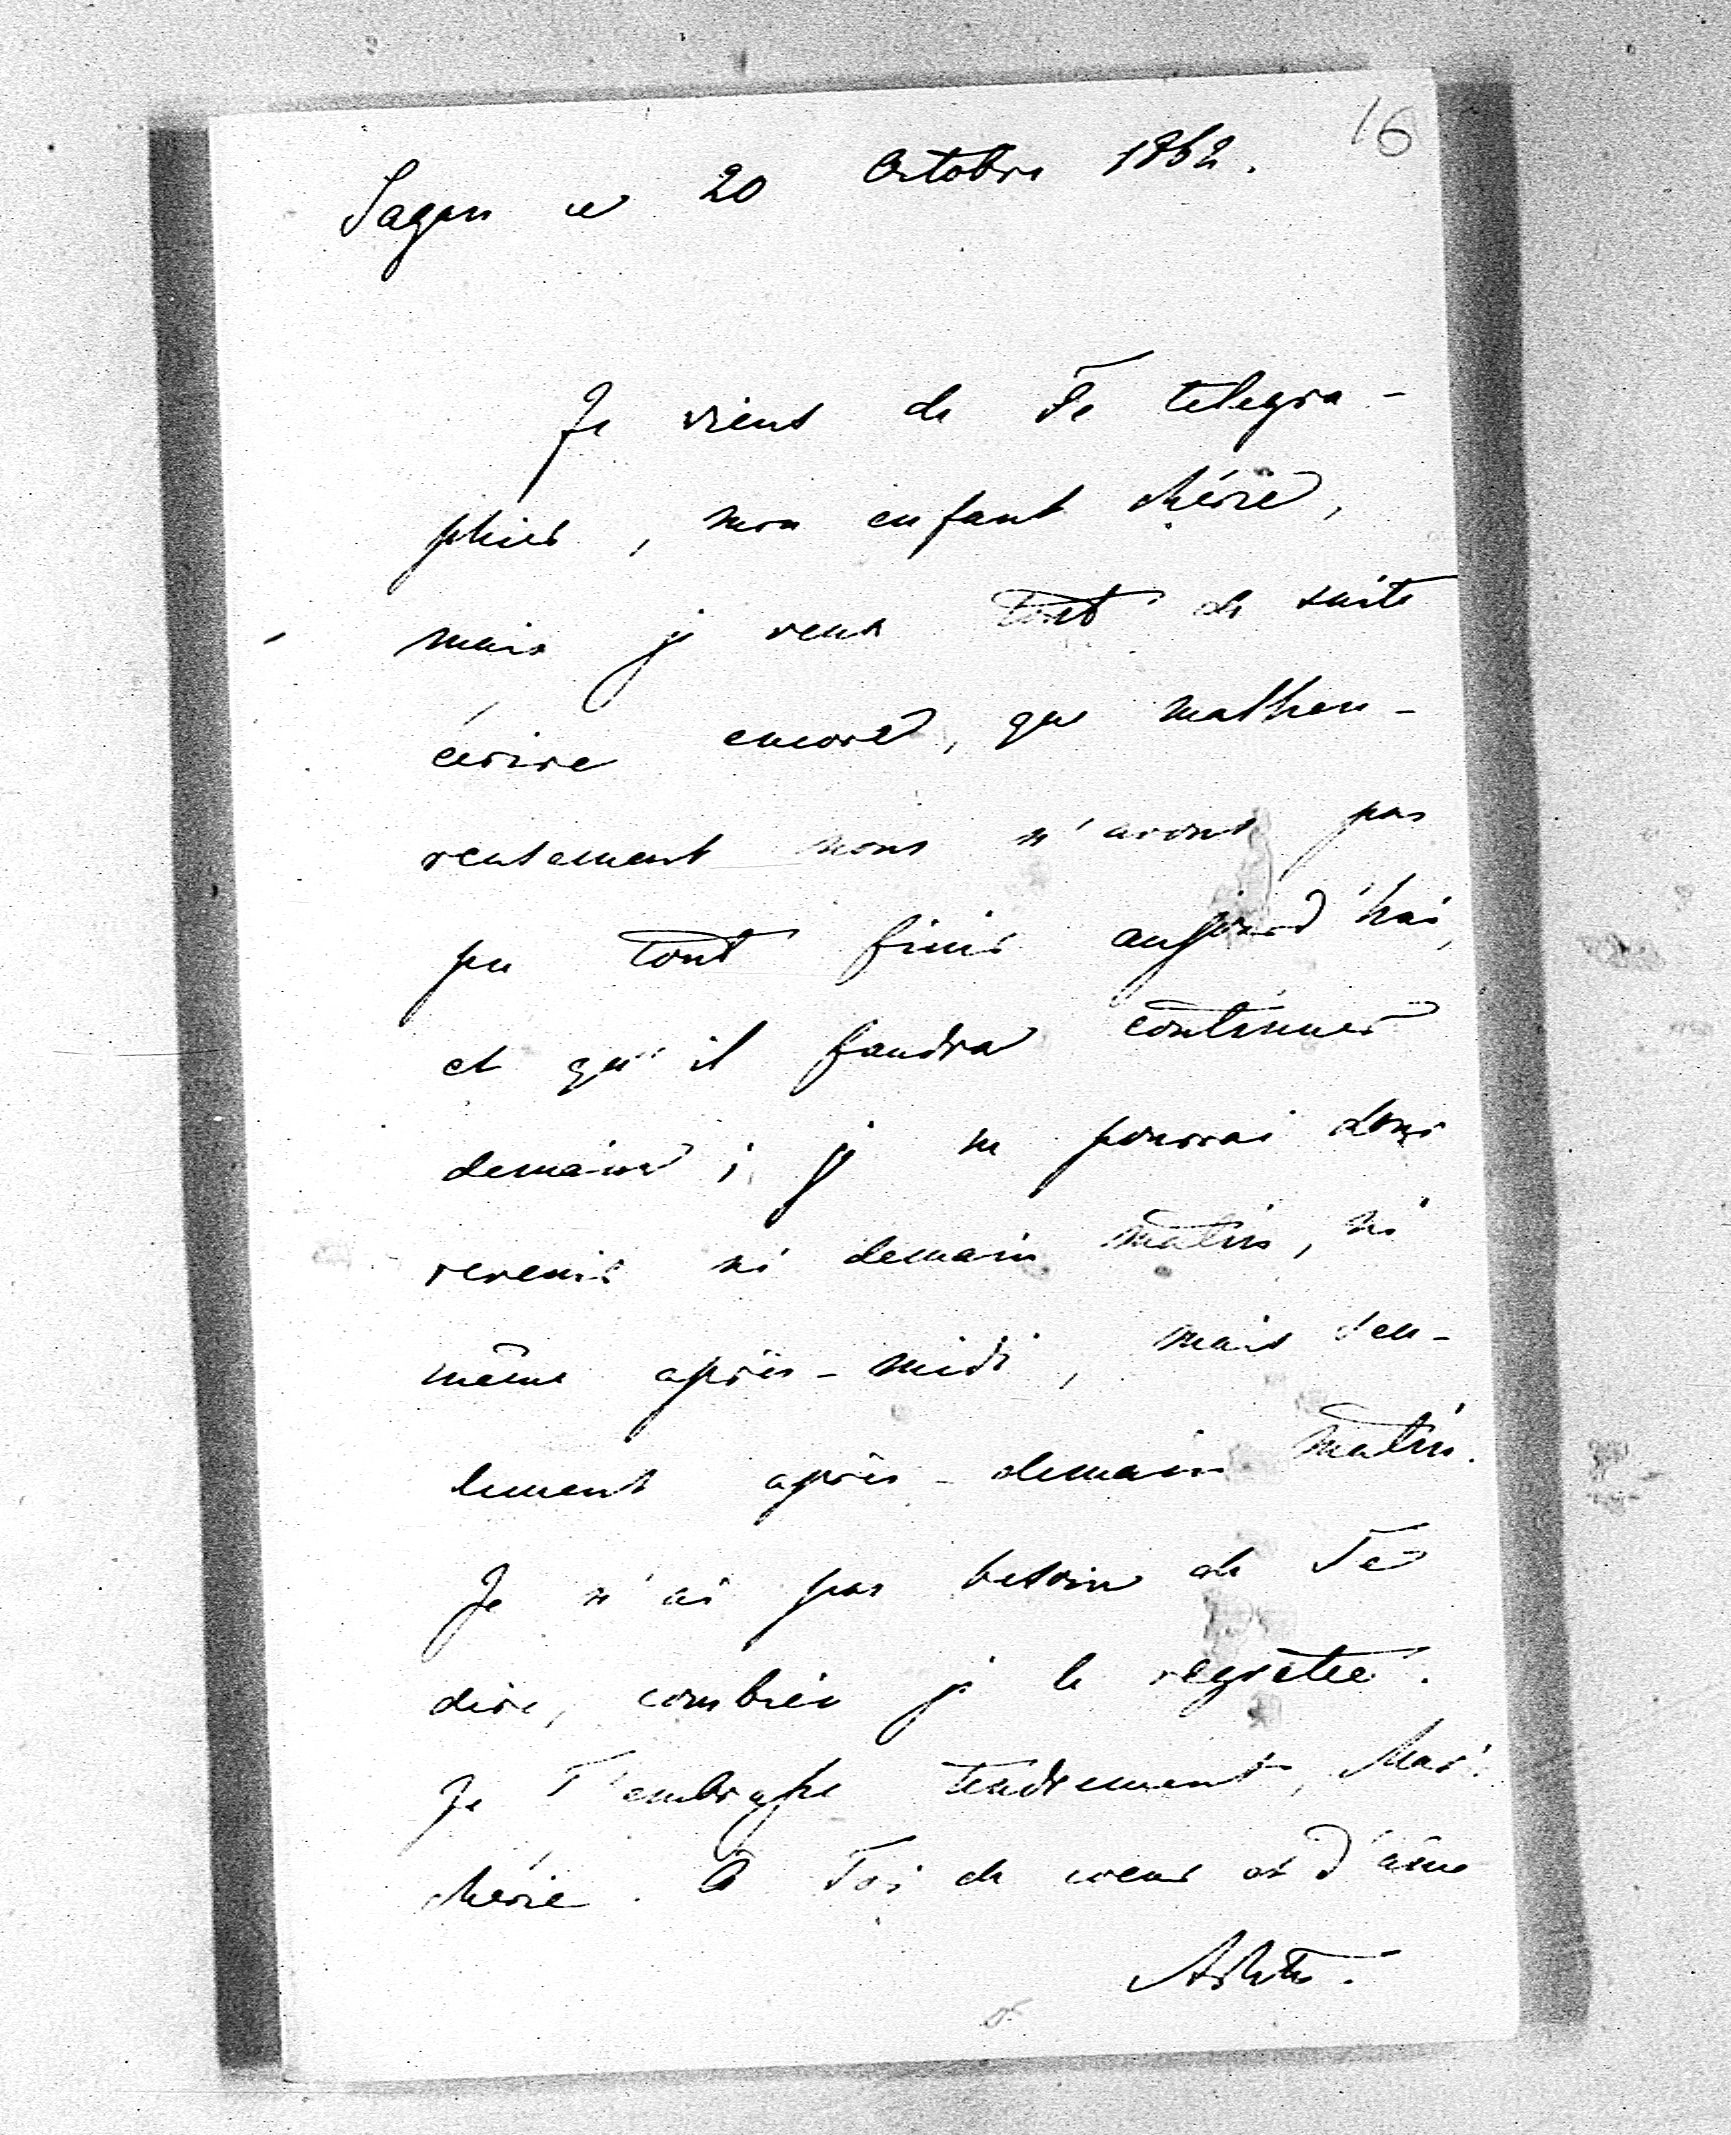 16
Sagan ce 20 Octobre 1862.
Je viens de Te telegra-
phier, mon enfant chérie,
mais je veux tout de suite
écrire encore, que malheu-
reusement nous n'avons pas
pu tout finir aujourd'hui,
et qu'il faudra continuer
demain; je ne pourrai donc
revenir ni demain matin, ni
même après-midi, mais seu-
lement après-demain matin.
Je n'ai pas besoin de Te
dire, combien je le regrette.
Je T'embrasse tendrement,
chérie. A Toi de coeur et d'âme